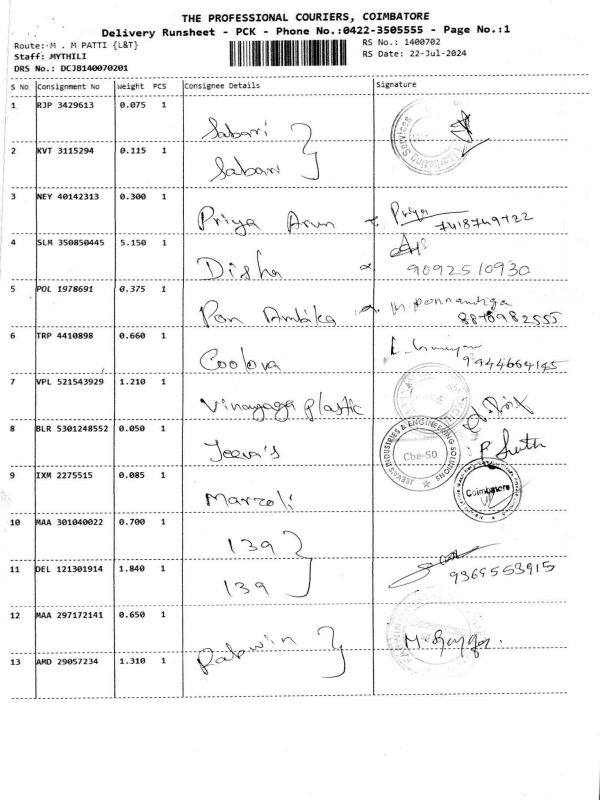 THE PROFESSIONAL COURIERS, COIMBATORE
Delivery Runsheet - PCK - Phone No.:0422-3505555 - Page No.:1
Route: M . M PATTI {L&T}
RS No.: 1400702
Staff: MYTHILI
RS Date: 22-Jul-2024
DRS No.: DCJB140070201
S No Consignment No Weight PCS Consignee Details Signature
1 RJP 3429613 0.075 1 Sabari
2 KVT 3115294 0.115 1 Sabari
3 NEY 40142313 0.300 1 Priya Arun Priya 7418749722
4 SLM 350850445 5.150 1 Disha 9092510930
5 POL 1978691 0.375 1 Pon Ambika 8870982555
6 TRP 4410898 0.660 1 Coolova 9944664145
7 VPL 521543929 1.210 1 Vinayaga plastic
8 BLR 5301248552 0.050 1 Jeeva's
JEEVAS INDUSTRIES & ENGINEERING SOLUTIONS
Cbe-50
9 IXM 2275515 0.085 1 Marzoli
Coimbatore
10 MAA 301040022 0.700 1 139
11 DEL 121301914 1.840 1 139 9365553915
12 MAA 297172141 0.650 1
13 AMD 29057234 1.310 1